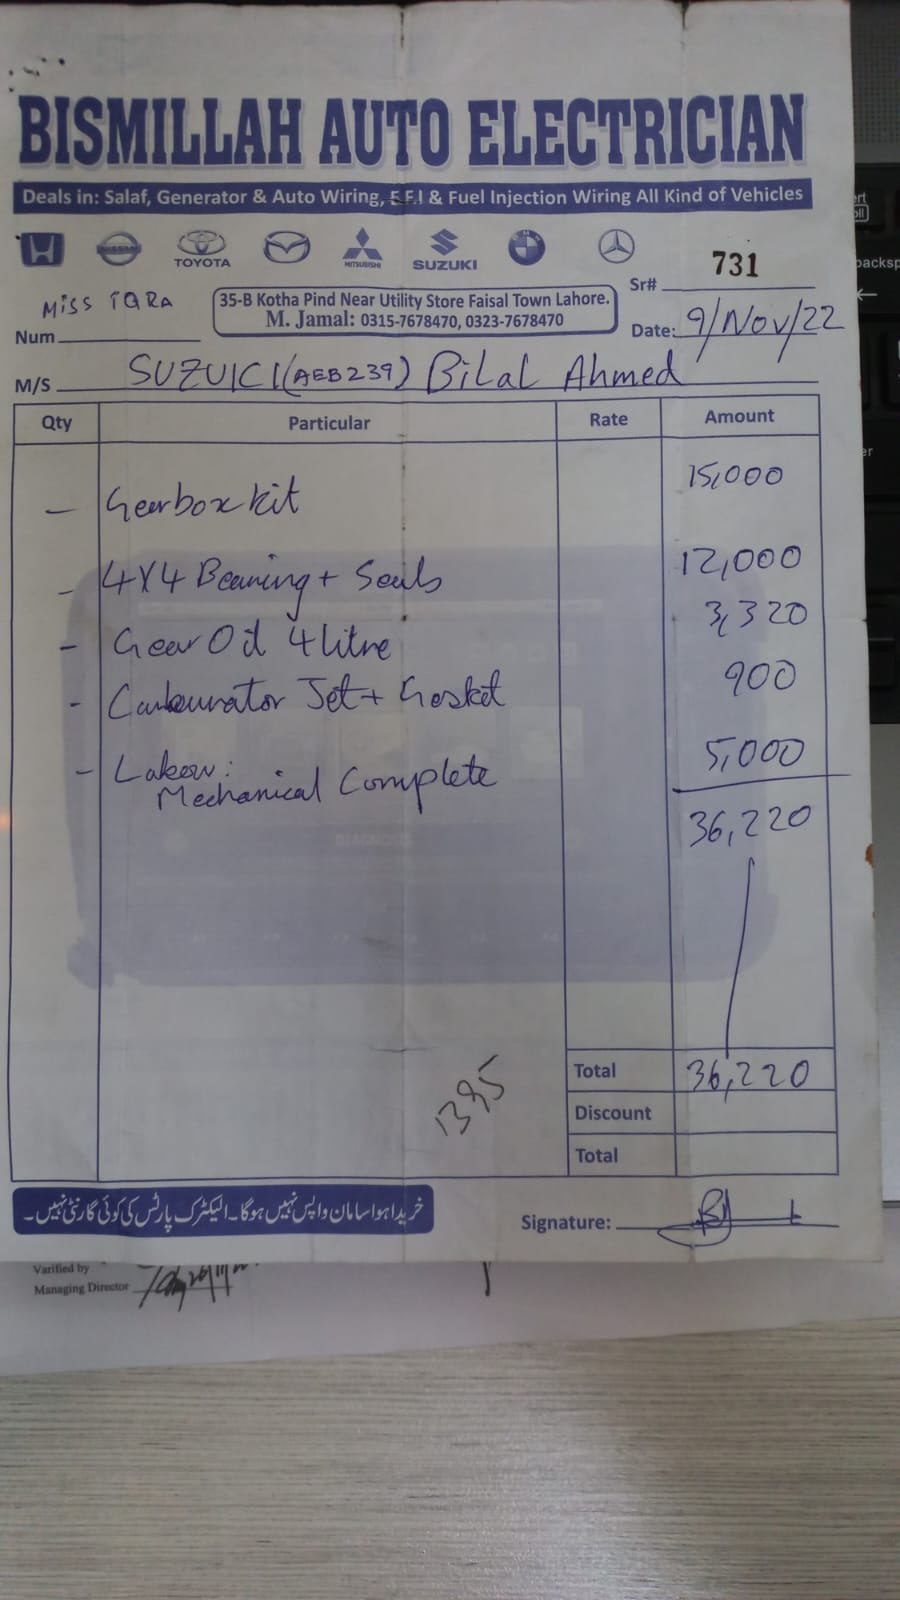 BISMILLAH AUTO ELECTRICIAN
Deals in: Salaf, Generator & Auto Wiring, E.F.I & Fuel Injection Wiring All Kind of Vehicles
NISSAN TOYOTA MITSUBISHI SUZUKI BMW
Sr# 731
MISS IQRA
35-B Kotha Pind Near Utility Store Faisal Town Lahore.
M. Jamal: 0315-7678470, 0323-7678470
Num
Date: 9/Nov/22
M/S SUZUKI (AEB239) Bilal Ahmed
Qty Particular Rate Amount
- Gearbox kit 15,000
- 4X4 Bearing + Seals 12,000
- Gear Oil 4 litre 3,320
- Carburator Jet + Gasket 900
- Labour: 5,000
Mechanical Complete
36,220
Total 36,220
1395
Discount
Total
خریدا ہوا سامان واپس نہیں ہوگا۔ الیکٹرک پارٹس کی کوئی گارنٹی نہیں۔
Signature:
Varified by
Managing Director
ert
oll
backsp
er